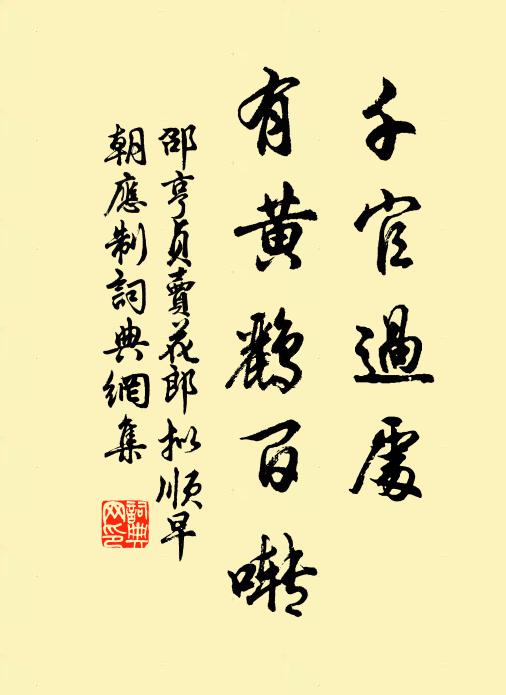 千官過處
有黃鸝百囀
邵亨貞賣花郎擬順早
朝應制詞典網集
詞典
网印